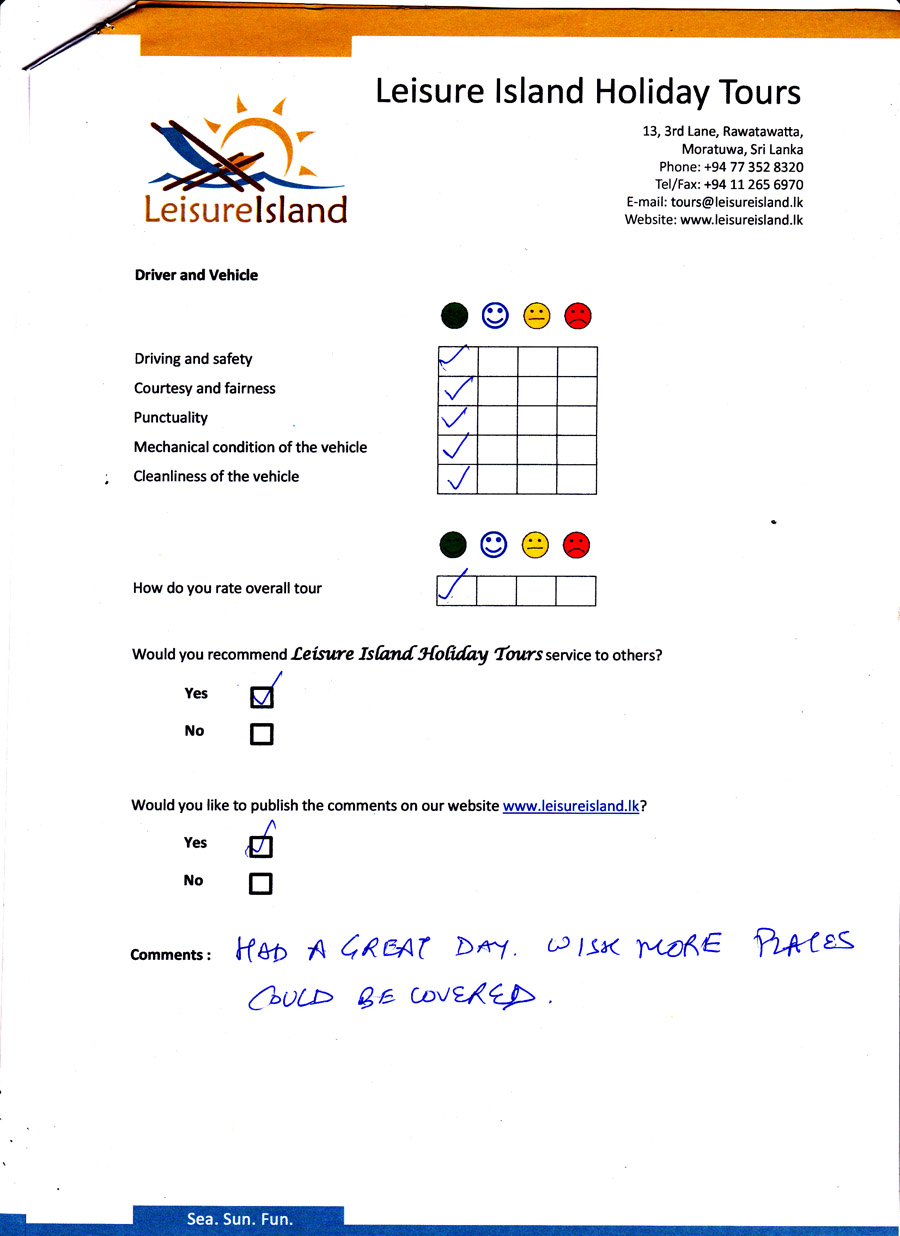 Leisure Island Holiday Tours
13, 3rd Lane, Rawatawatta,
Moratuwa, Sri Lanka
Phone: +94 77 352 8320
Tel/Fax: +94 11 265 6970
E-mail: tours@leisureisland.lk
Website: www.leisureisland.lk
LeisureIsland
Driver and Vehicle
Driving and safety
Courtesy and fairness
Punctuality
Mechanical condition of the vehicle
Cleanliness of the vehicle
How do you rate overall tour
Would you recommend Leisure Island Holiday Tours service to others?
Yes
No
Would you like to publish the comments on our website www.leisureisland.lk?
Yes
No
Comments : HAD A GREAT DAY. WISH MORE PLACES
COULD BE COVERED.
Sea. Sun. Fun.